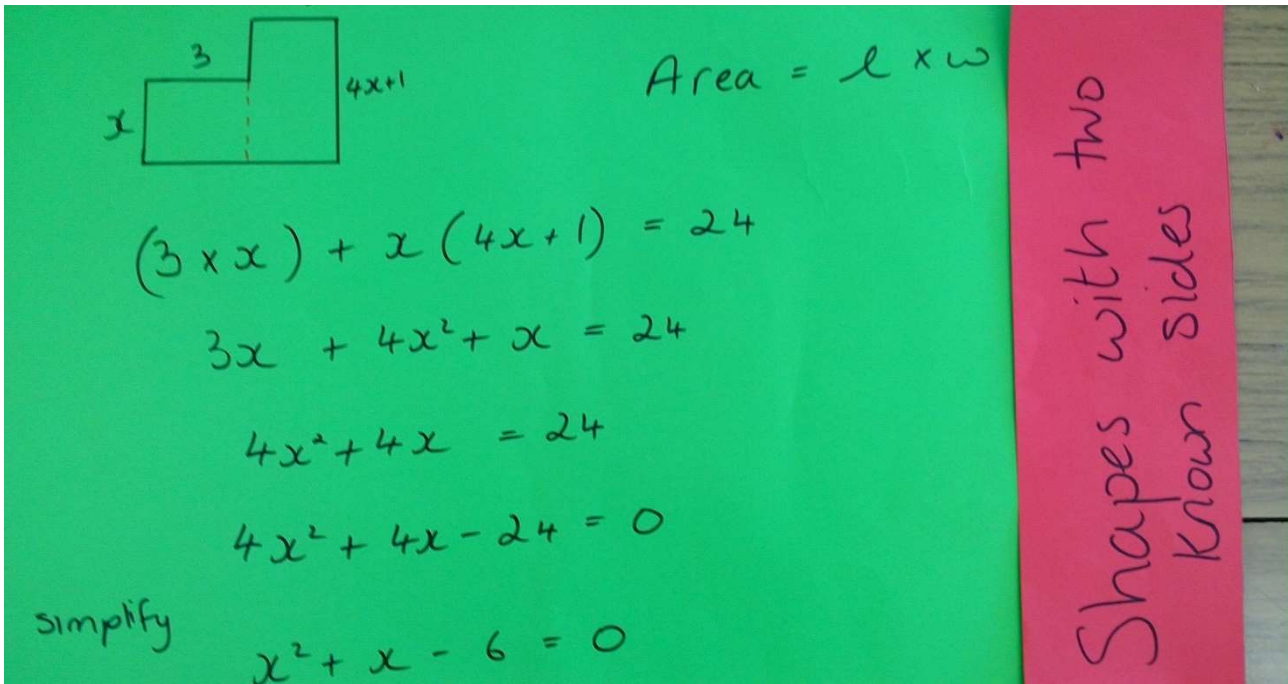 3
x
4x+1
Area = l × w
(3 × x) + x (4x + 1) = 24
3x + 4x² + x = 24
4x² + 4x = 24
4x² + 4x - 24 = 0
simplify
x² + x - 6 = 0
Shapes with two
known sides